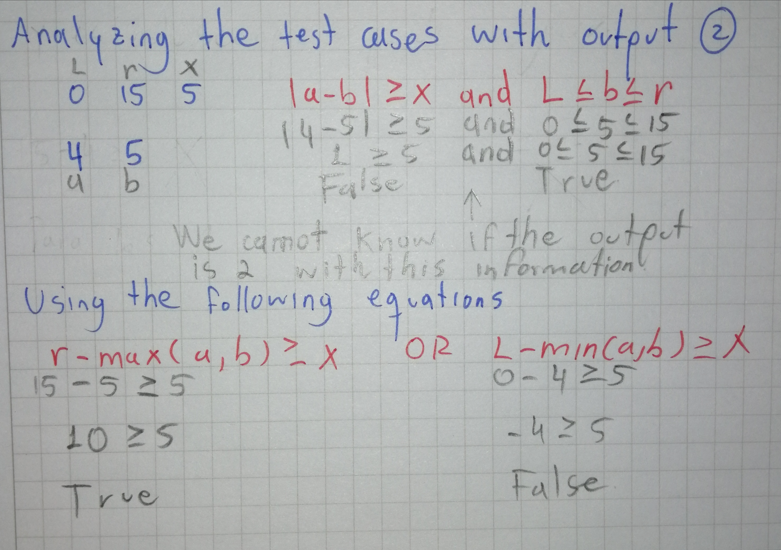 Analyzing the test cases with output ②
L r X
0 15 5 |a-b| ≥ X and L ≤ b ≤ r
|4-5| ≥ 5 and 0 ≤ 5 ≤ 15
4 5 1 ≥ 5 and 0 ≤ 5 ≤ 15
a b False True
↑
We cannot know if the output
is 2 with this information
Using the following equations
r - max(a, b) ≥ X OR L - min(a, b) ≥ X
15 - 5 ≥ 5 0 - 4 ≥ 5
10 ≥ 5 -4 ≥ 5
True False